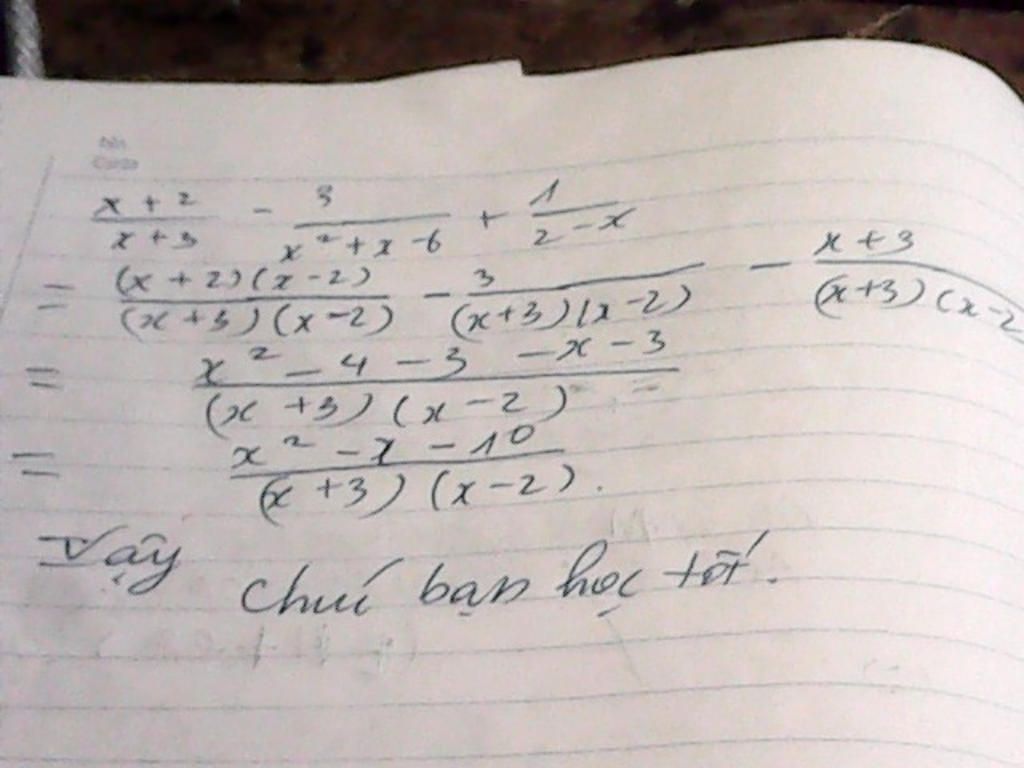 No.
Date
\frac{x+2}{x+3} - \frac{3}{x^2+x-6} + \frac{1}{2-x}
= \frac{(x+2)(x-2)}{(x+3)(x-2)} - \frac{3}{(x+3)(x-2)} - \frac{x+3}{(x+3)(x-2}
= \frac{x^2-4-3-x-3}{(x+3)(x-2)}
= \frac{x^2-x-10}{(x+3)(x-2)}.
Vậy
Chuí bạn học tốt.